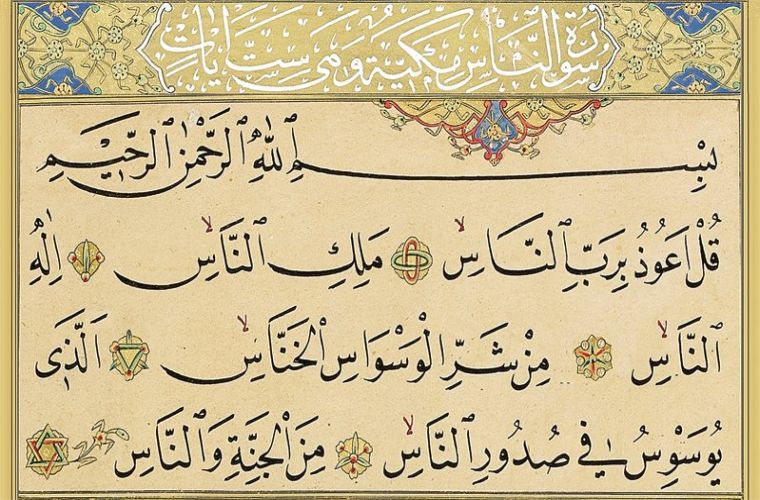 سُورَةُ النَّاسِ مَكِّيَّةٌ وَهِيَ سِتُّ آيَاتٍ
بِسْمِ اللّٰهِ الرَّحْمٰنِ الرَّحِيمِ
قُلْ اَعُوذُ بِرَبِّ النَّاسِۙ مَلِكِ النَّاسِۙ اِلٰهِ
النَّاسِۙ مِنْ شَرِّ الْوَسْوَاسِ الْخَنَّاسِۙ اَلَّذ۪ى
يُوَسْوِسُ ف۪ى صُدُورِ النَّاسِۙ مِنَ الْجِنَّةِ وَالنَّاسِ